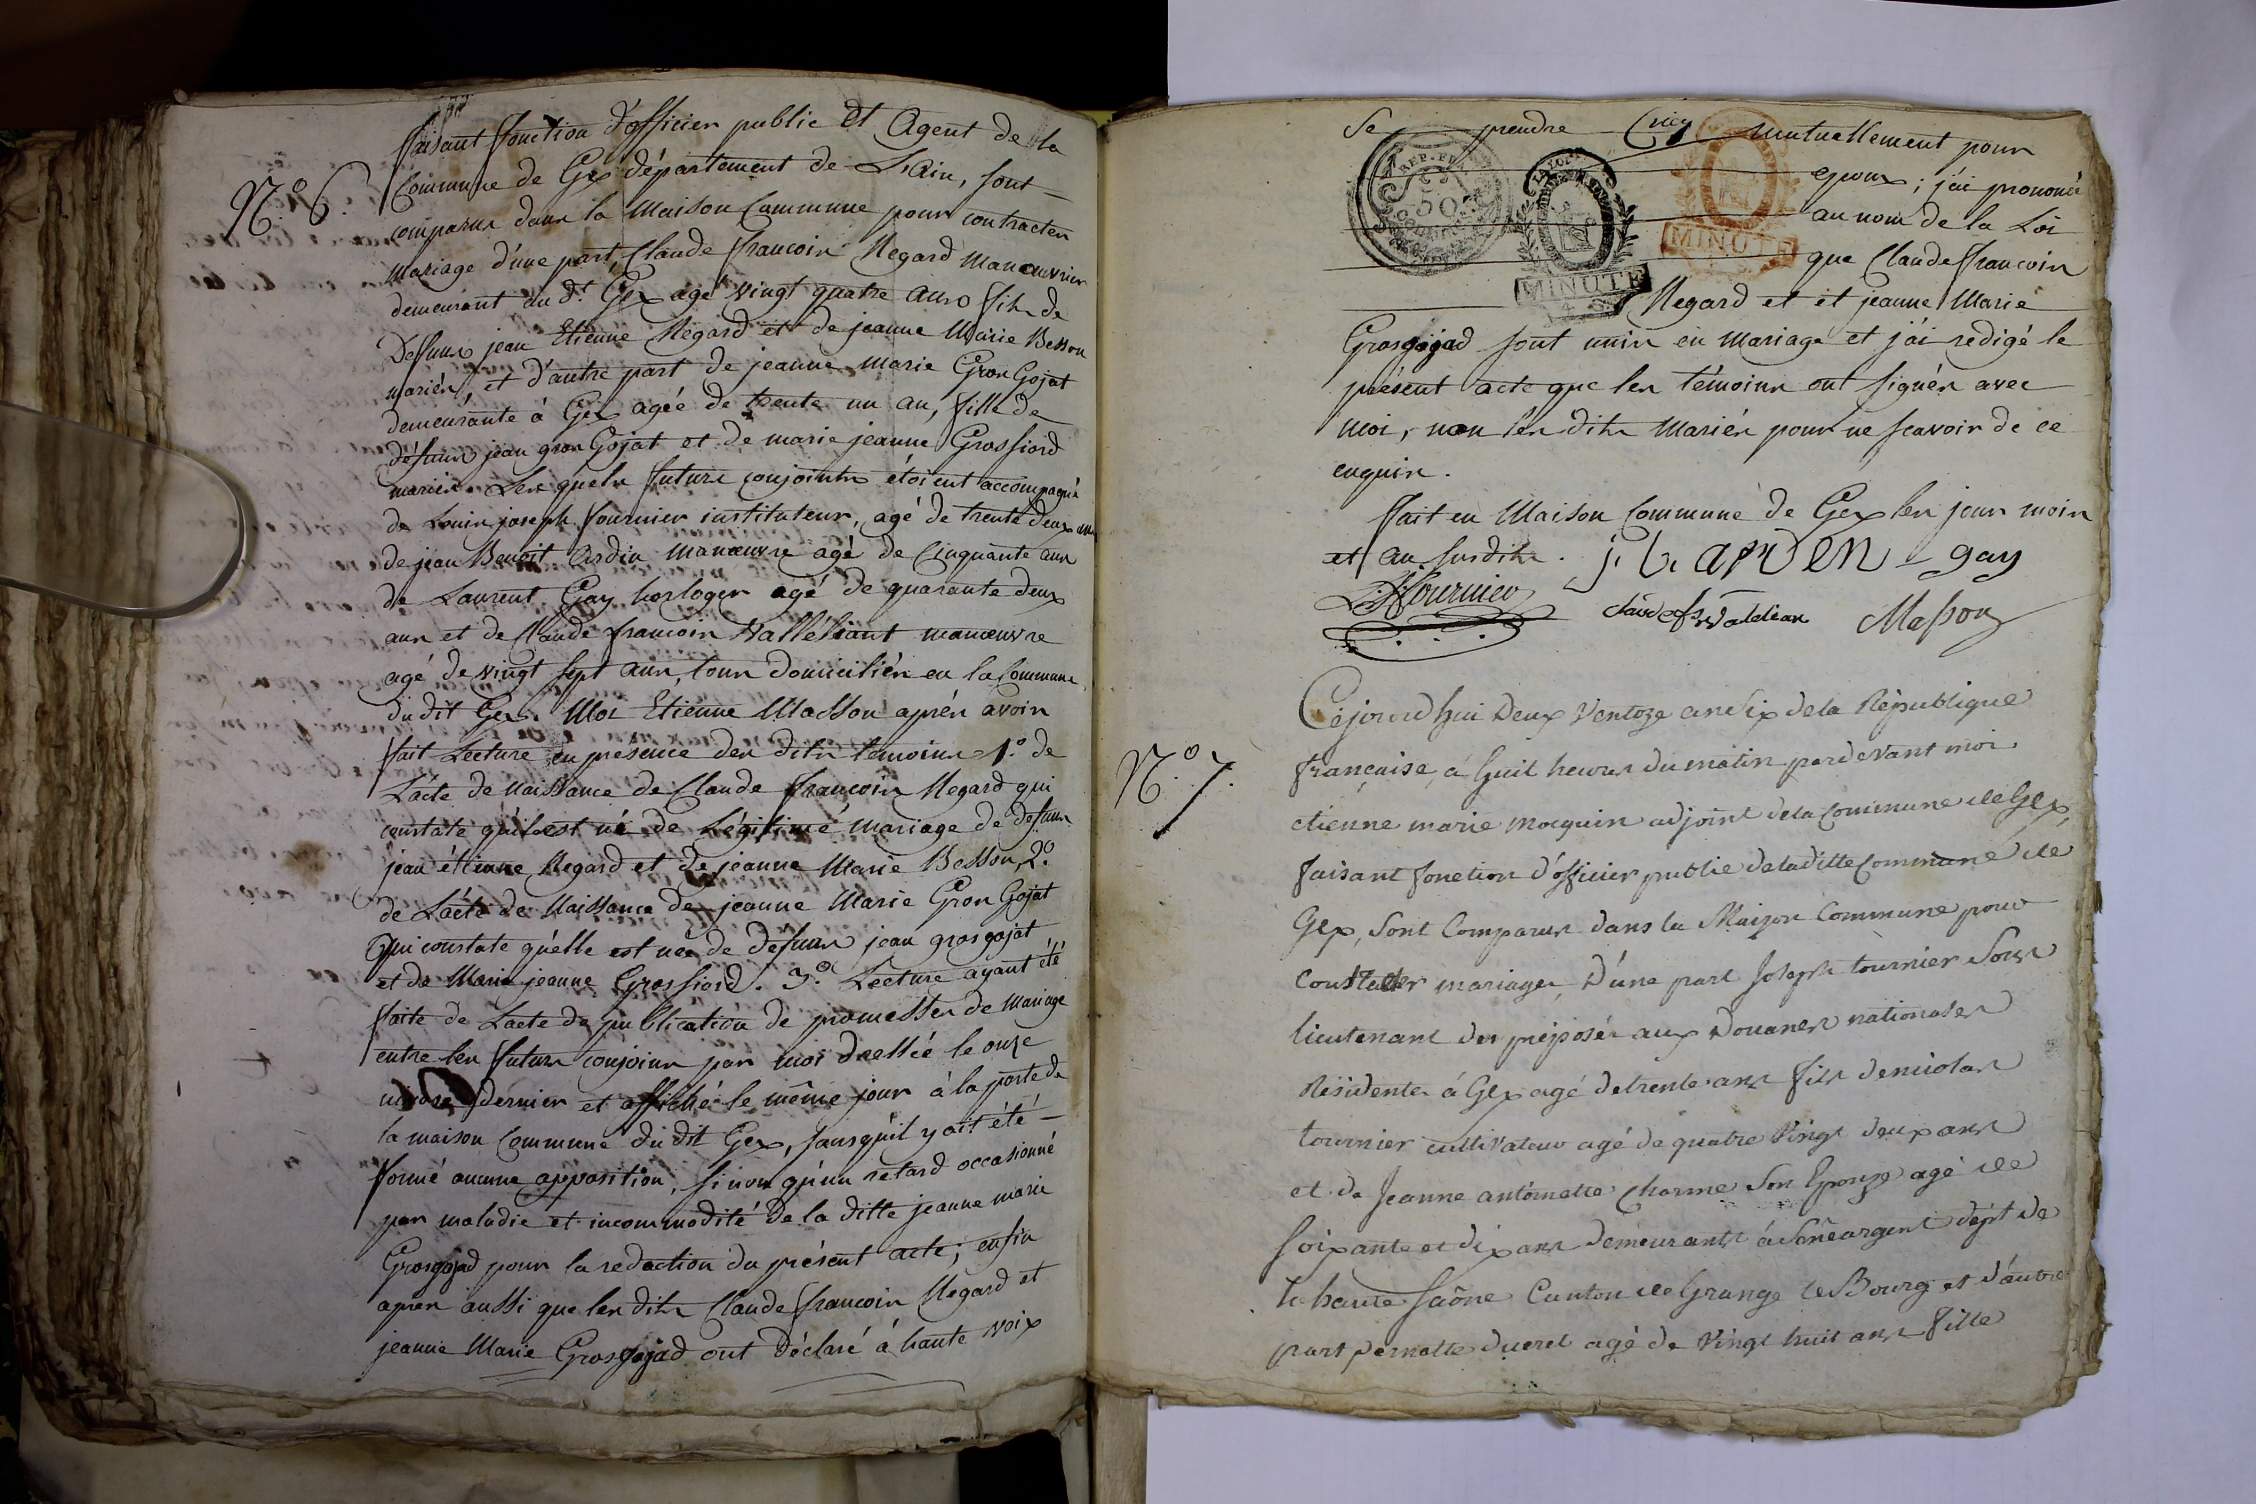 N.° 6.
faisant fonction d'officier public et Agent de la
Commune de Gex département de L'Ain, sont
comparus dans la Maison Commune pour contracter
mariage d'une part, Claude françois Regard manouvrier
demeurant au d.t Gex agé vingt quatre ans fils de
Défunts jean Etienne Regard et de jeanne Marie Besson
mariés, et d'autre part de jeanne marie Gros Gojat
demeurante à Gex agée de trente un an, fille de
défunts jean gros Gojat et de marie jeanne Grosfiord
mariés. Les quels futurs conjoints étoient accompagné
de Louis joseph fournier instituteur, agé de trente deux ans
de jean Benoit Ardin manœuvre agé de Cinquante ans
de Laurent Gay horloger agé de quarante deux
ans et de Claude françois Valléliant manœuvre
agé de vingt sept ans, tous domiciliés en la Commune
du dit Gex. Moi Etienne Masson après avoir
fait Lecture en présence des dits temoins 1.° de
L'acte de Naissance de Claude françois Regard qui
constate qu'il est né de Légitime mariage de defunts
jean étienne Regard et de jeanne Marie Besson, 2.°
de L'acte de Naissance de jeanne Marie Gros Gojat
qui constate qu'elle est née de defunts jean grosgojat
et de Marie jeanne Grosfiord. 3.° Lecture ayant été
faite de L'acte de publication de promesses de Mariage
entre les futurs conjoins par moi dressée le onze
nivose dernier et affiché le même jour à la porte de
la maison Commune du dit Gex, sans qu'il y ait été
formé aucune apposition, sinon qu'un retard occasionné
par maladie et incommodité de la ditte jeanne marie
Grosgojad pour la redaction du présent acte; enfin
apres aussi que les dits Claude françois Regard et
jeanne Marie Grosgojad ont déclaré à haute voix
Se prendre mutuellement pour
epoux; j'ai prononcé
au nom de la Loi
que Claude françois
Regard et et jeanne Marie
Grosgojad sont unis en mariage et j'ai redigé le
présent acte que les témoins ont signés avec
moi, non les dits Mariés pour ne scavoir de ce
enquis.
REP. FRA.
50
MINUTE
MINUTE
fait en Maison Commune de Gex les jour mois
et an susdits. j. b. arden gay
L. J. fournier Claude fs Masson
N.° 7.
Cejourd'hui Deux Ventoze an Six de la République
française, à huit heures du matin pardevant moi
etienne marie mocquin adjoint de la Commune de Gex,
faisant fonction d'officier public de la ditte Commune de
Gex, sont Comparus dans la Maison Commune pour
Contracter mariage, D'une part Joseph tournier Sous
lieutenant des préposés aux Douanes nationales
Résidente à Gex agé de trente ans fils de nicolas
tournier cultivateur agé de quatre Vingt deux ans
et de Jeanne antoinette Charme Son Epouze agé de
soixante et dix ans demeurants à Sénéargent dép.t de
la haute Saône Canton de Grange le Bourg et d'autre
part pernette ducret agé de Vingt huit ans fille